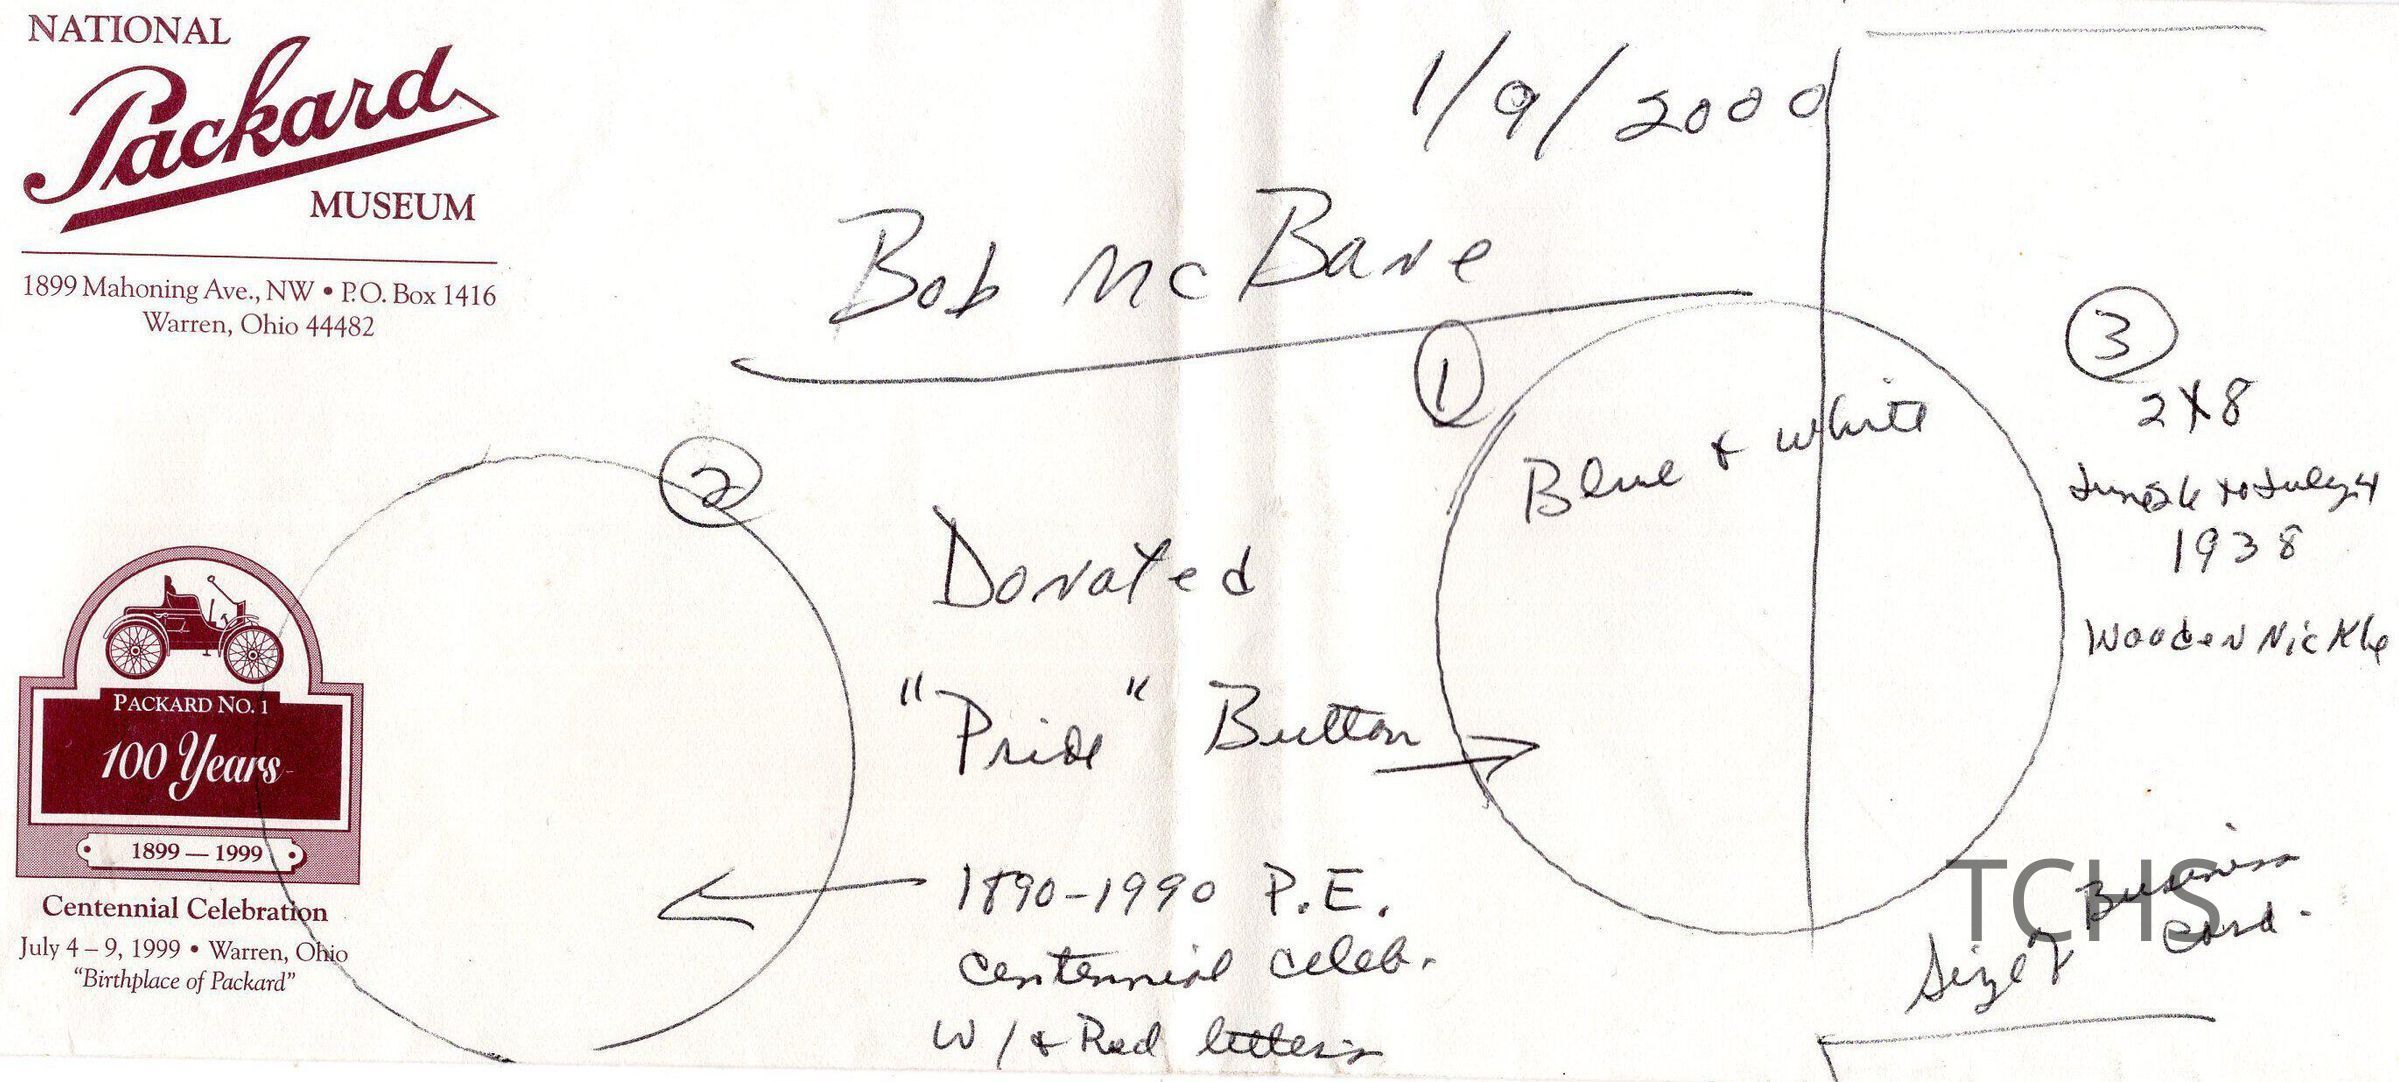 NATIONAL
Packard
MUSEUM
1899 Mahoning Ave., NW • P.O. Box 1416
Warren, Ohio 44482
1/9/2000
Bob McBane
1
Blue & white
3
2X8
June 26 to July 4
1938
Wooden Nickle
2
Donated
"Pride" Button
1890-1990 P.E.
Centennial Celeb.
W/ & Red letters
PACKARD NO. 1
100 Years
1899 — 1999
Centennial Celebration
July 4 – 9, 1999 • Warren, Ohio
"Birthplace of Packard"
Size of Business
card.
TCHS